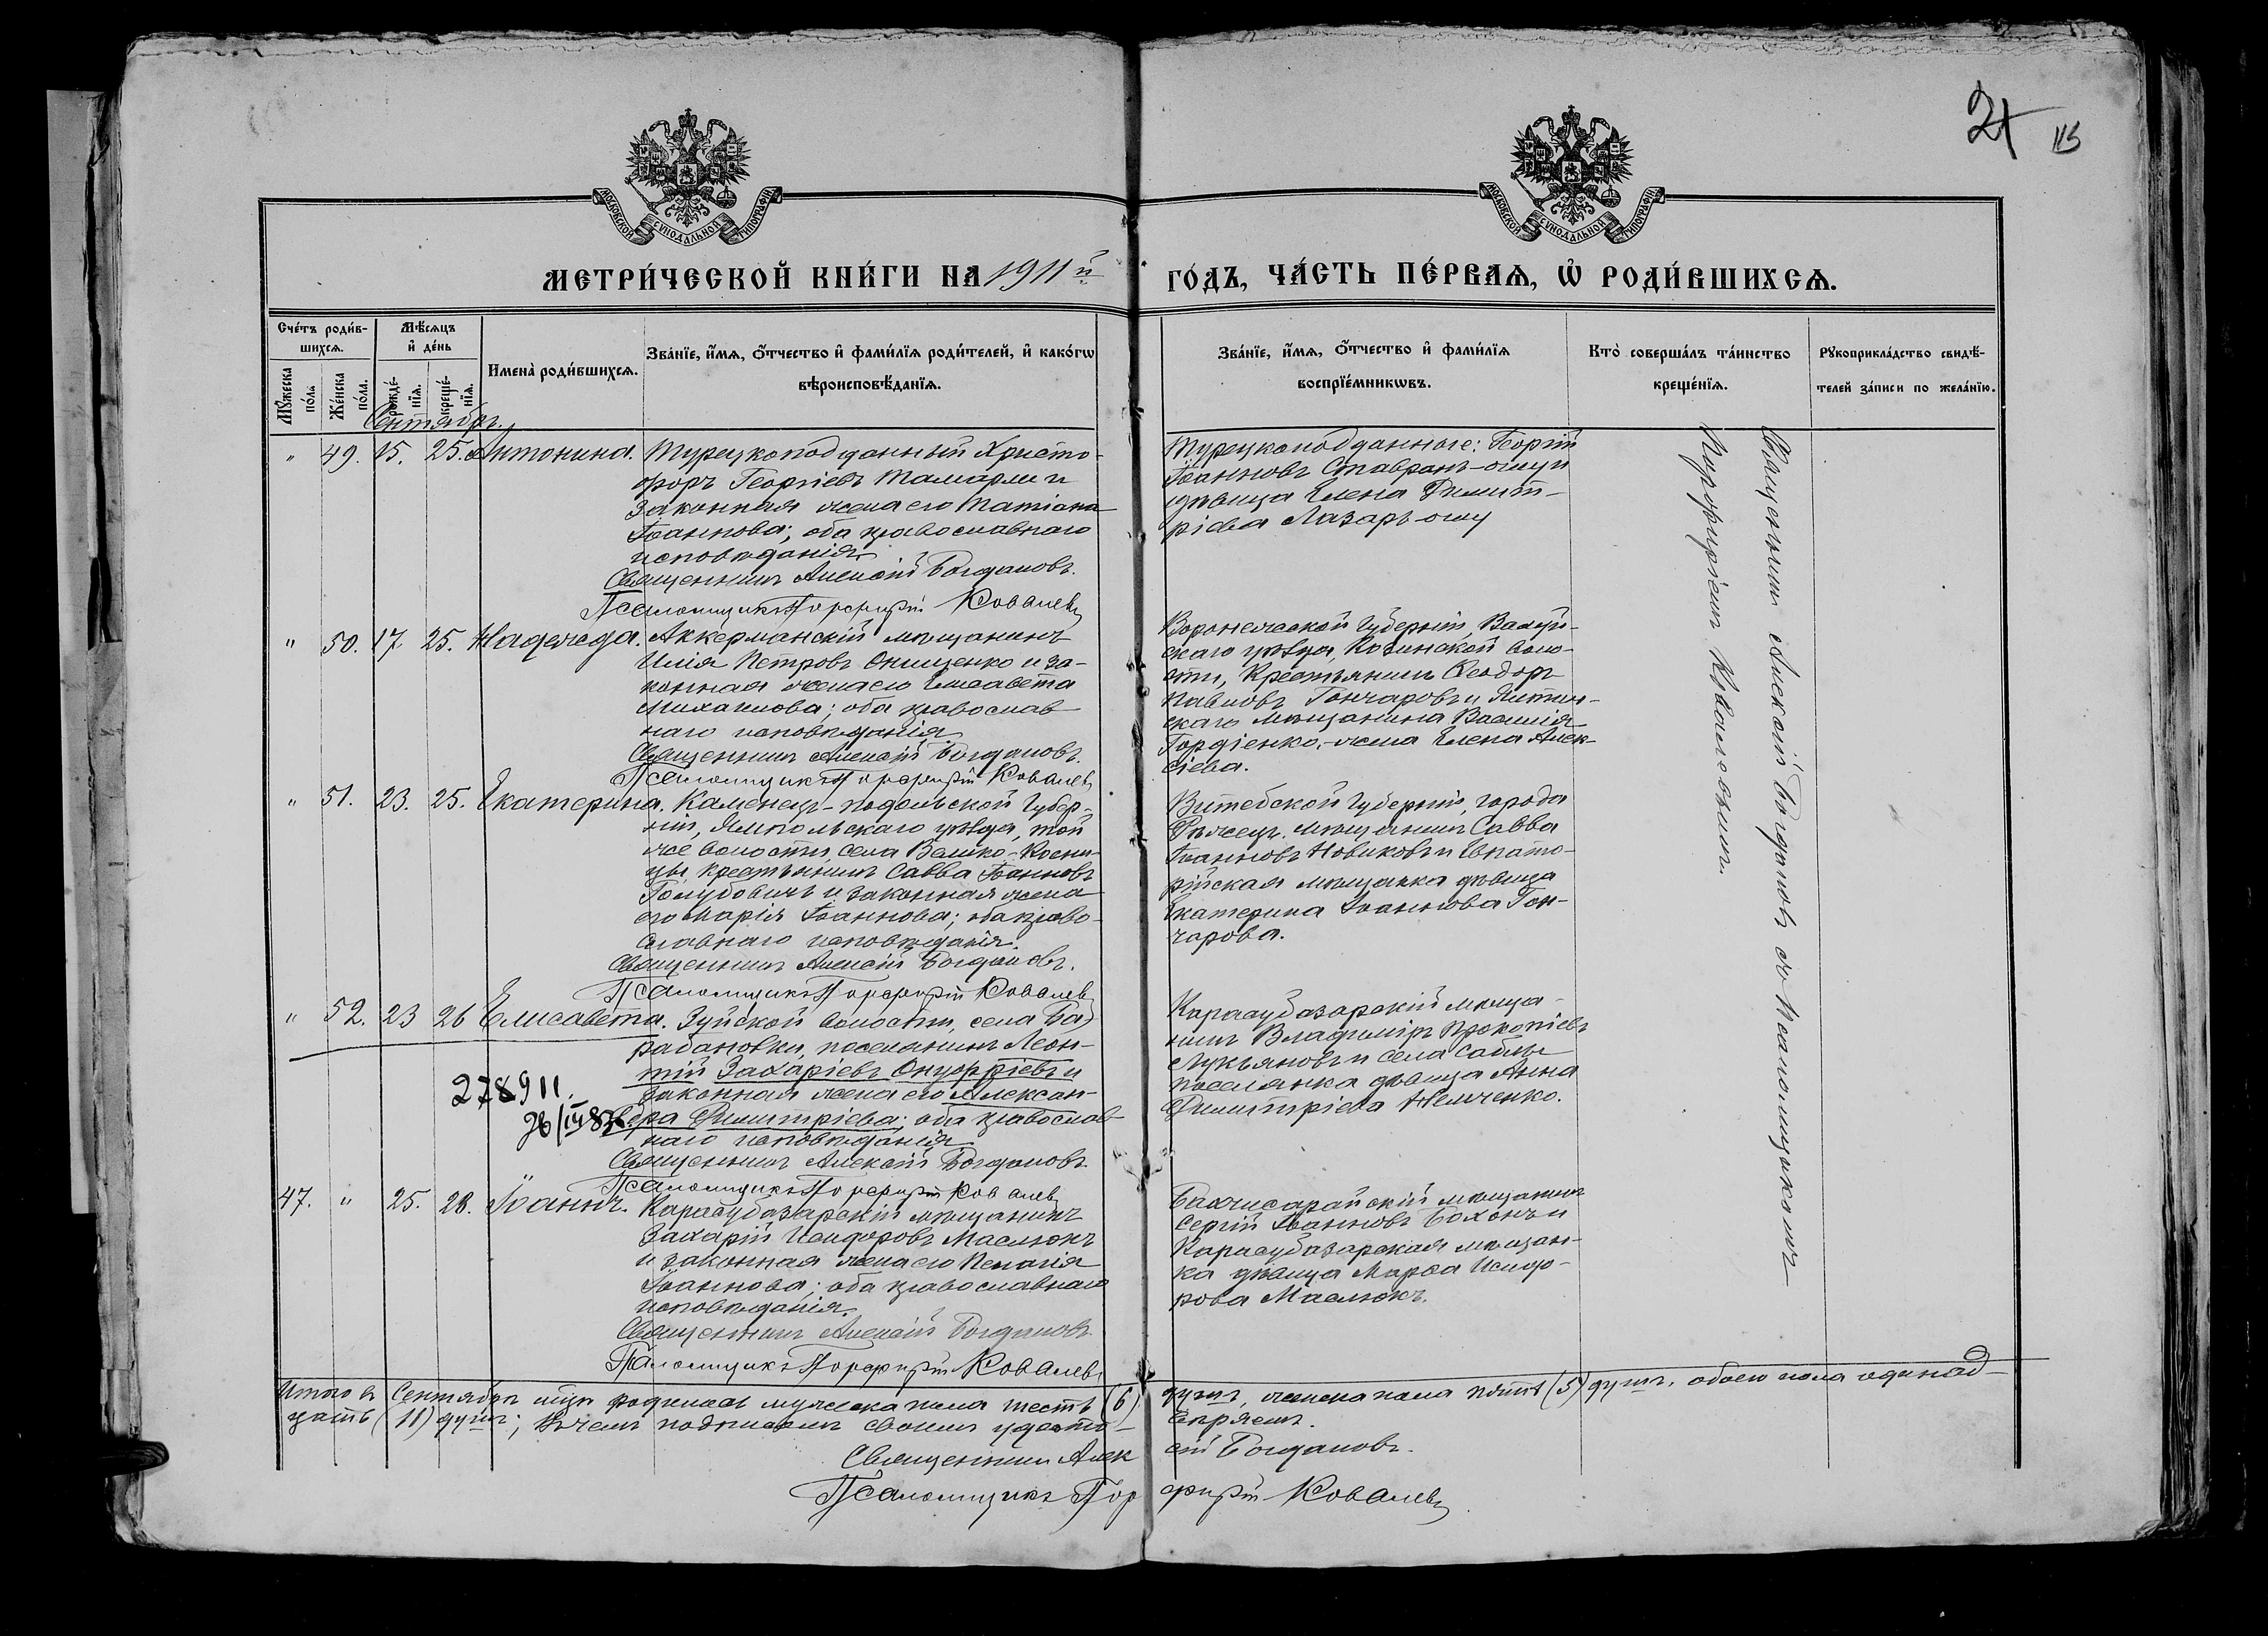 2
115
МОСКОВСКОЙ СѴНОДАЛЬНОЙ ТИПОГРАФІИ
МОСКОВСКОЙ СѴНОДАЛЬНОЙ ТИПОГРАФІИ
МЕТРИ́ЧЕСКОЙ КНИ́ГИ НА 1911й
ГО́ДЪ, ЧА́СТЬ ПЕ́РВАѦ, Ѡ҆ РОДИ́ВШИХСѦ.
Сче́тъ роди́в-
шихсѧ.
Мѣ́сѧцъ
и҆ де́нь
Мꙋ́жеска по́ла
Же́нска по́ла.
рожде́-
нїѧ.
креще́-
нїѧ.
Имена̀ роди́вшихсѧ.
Зва́нїе, и҆́мѧ, ѻ҆́тчество и҆ фами́лїѧ роди́телей, и҆ како́гѡ
вѣроисповѣ́данїѧ.
Зва́нїе, и҆́мѧ, ѻ҆́тчество и҆ фами́лїѧ
воспрїе́мникѡвъ.
Кто̀ соверша́лъ та́инство
креще́нїѧ.
Рꙋкоприкла́дство свидѣ́-
телей за́писи по жела́нїю.
Сентябрь.
" 49. 15. 25. Антонина. Турецкоподданный Христо-
форъ Георгіевъ и
законная жена его Татіана
Іоаннова; оба православнаго
исповѣданія.
Священникъ Алексій Богдановъ.
Псаломщикъ Порфирій Ковалев
Турецкоподданные: Георгій
Іоанновъ Ставранъ-оглу и
дѣвица Елена Димит-
ріева Лазаръ-оглу
" 50. 17. 25. Надежда. Аккерманскій мѣщанинъ
Илія Петровъ Онищенко и за-
конная жена его Елисавета
Михаилова; оба православ-
наго исповѣданія.
Священникъ Алексій Богдановъ.
Псаломщикъ Порфирій Ковалев
Воронежской губерніи, Валуй-
скаго уѣзда, Козинской воло-
сти, крестьянинъ Ѳеодоръ
Павловъ Гончаровъ и Ялтин-
скаго мѣщанина Василія
Гордіенко, жена Елена Алек-
сіева.
" 51. 23. 25. Екатерина. Каменецъ-подольской губер-
ніи, Ямпольскаго уѣзда, той
же волости, села Велико-Косни-
цы крестьянинъ Савва Іоанновъ
Голубовичъ и законная жена
его Марія Іоаннова; оба право-
славнаго исповѣданія.
Священникъ Алексій Богдановъ.
Псаломщикъ Порфирій Ковалев
Витебской губерніи, города
Рѣжецъ мѣщанинъ Савва
Іоанновъ Новиковъ и Евпато-
рійская мѣщанка дѣвица
Екатерина Іоаннова Гон-
чарова.
" 52. 23 26 Елисавета. Зуйской волости, села Ба-
рабановки, поселянинъ Леон-
тій Захаріевъ Онуфріевъ и
законная жена его Алексан-
дра Димитріева; оба православ-
наго исповѣданія
Священникъ Алексій Богдановъ.
Псаломщикъ Порфирій Ковалев
278911.
Карасубазарскій мѣща-
нинъ Владиміръ Прокопіевъ
Лукьяновъ и села Саблы
поселянка дѣвица Анна
Димитріева Немченко.
47. " 25. 28. Іоаннъ. Карасубазарскій мѣщанинъ
Захарій Исидоровъ Маслюкъ
и законная жена его Пелагія
Іоаннова; оба православнаго
исповѣданія.
Священникъ Алексій Богдановъ
Псаломщикъ Порфирій Ковалев
Бахчисарайскій мѣщанинъ
Сергій Іоанновъ Боханъ и
Карасубазарская мѣщан-
ка дѣвица Марѳа Исидо-
рова Маслюкъ.
Священникъ Алексій Богдановъ съ Псаломщикомъ
Порфиріемъ Ковалевымъ.
Итого въ Сентябрѣ мцѣ родилось мужеска пола шесть (6) душъ, женска пола пять (5) душъ, обоего пола одинад-
цать (11) душъ; въ чемъ подписомъ своимъ удосто-
вѣряемъ.
Священникъ Алексій Богдановъ.
Псаломщикъ Порфирій Ковалев